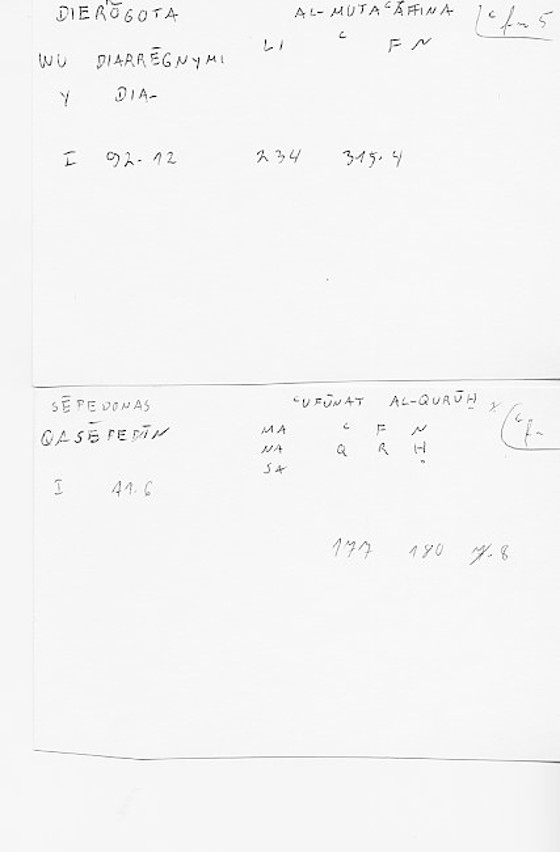 DIERŌGOTA AL-MUTAᶜAFFINA ᶜfn 5
LI ᶜ F N
WU DIARRĒGNYMI
Y DIA-
I 92.12 234 315.4
SĒPEDONAS ᶜUFŪNAT AL-QURŪḤ x ᶜf-
QLSĒPEDŌN MA ᶜ F N
NA Q R Ḥ
SA
I 11.6
177 180 7.8